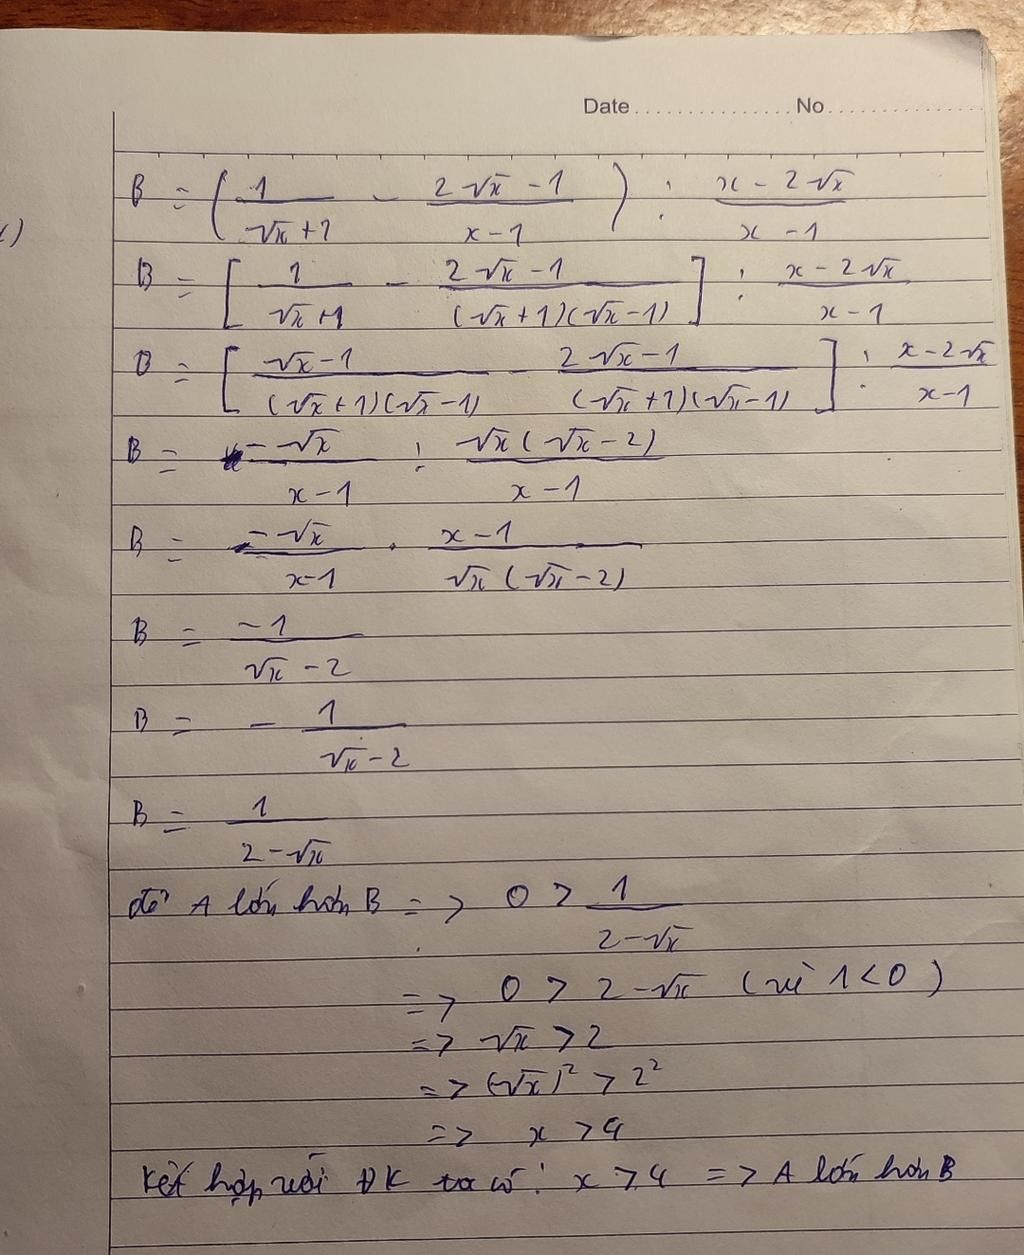 Date ............... No ...............
:)
B = ( 1/(√x+1) - (2√x-1)/(x-1) ) : (x-2√x)/(x-1)
B = [ 1/(√x+1) - (2√x-1)/((√x+1)(√x-1)) ] : (x-2√x)/(x-1)
B = [ (√x-1)/((√x+1)(√x-1)) - (2√x-1)/((√x+1)(√x-1)) ] : (x-2√x)/(x-1)
B = (-√x)/(x-1) : (√x(√x-2))/(x-1)
B = (-√x)/(x-1) . (x-1)/(√x(√x-2))
B = (-1)/(√x-2)
B = - 1/(√x-2)
B = 1/(2-√x)
để A lớn hơn B => 0 > 1/(2-√x)
=> 0 > 2-√x (vì 1<0)
=> √x > 2
=> (√x)² > 2²
=> x > 4
Kết hợp với ĐK ta có: x > 4 => A lớn hơn B